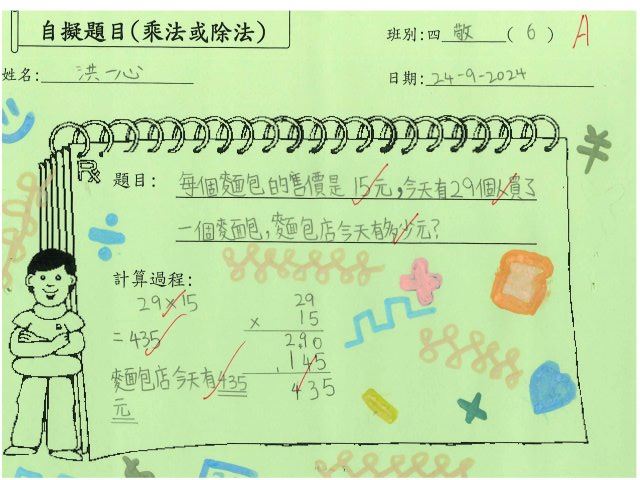 自擬題目(乘法或除法)
班別:四 敬 ( 6 ) A
姓名: 洪一心
日期: 24-9-2024
題目: 每個麵包的售價是15元,今天有29個人買了
一個麵包,麵包店今天有多少元?
計算過程:
29×15
=435
麵包店今天有435
元
29
× 15
290
145
435